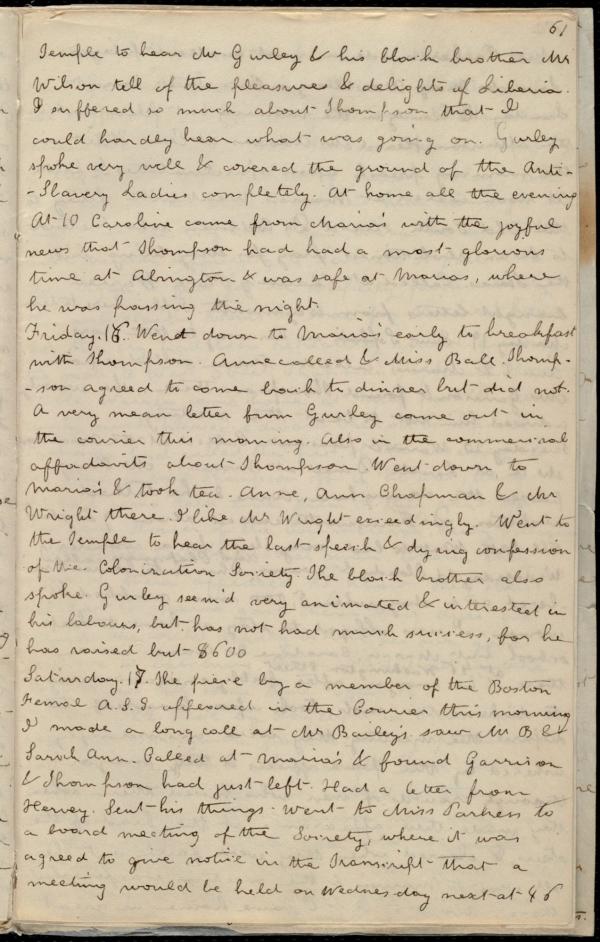 61
Temple to hear Mr Gurley & his black brother Mr
Wilson tell of the pleasures & delights of Liberia.
I suffered so much about Thompson that I
could hardly hear what was going on. Gurley
spoke very well & covered the ground of the Anti-
-Slavery Ladies completely. At home all the evening
At 10 Caroline came from Maria's with the joyful
news that Thompson had had a most glorious
time at Abington & was safe at Marias, where
he was passing the night.
Friday. 16. Went down to Maria's early to breakfast
with Thompson. Anne called & Miss Ball. Thomp-
-son agreed to come back to dinner but did not.
A very mean letter from Gurley came out in
the courier this morning. Also in the commercial
affadavits about Thompson. Went down to
Maria's & took tea. Anne, Ann Chapman & Mr
Wright there. I like Mr Wright exceedingly. Went to
the Temple to hear the last speech & dying confession
of the Colonization Society. The black brother also
spoke. Gurley seem'd very animated & interested in
his labours, but has not had much success, for he
has raised but $600
Saturday. 17. The piece by a member of the Boston
Femal A.S.S. appeared in the Courier this morning
I made a long call at Mr Bailey's saw Mr B &
Sarah Ann. Called at Maria's & found Garrison
& Thompson had just left. Had a letter from
Hervey. Sent his things. Went to Miss Parkess to
a board meeting of the Society, where it was
agreed to give notice in the Transcript that a
meeting would be held on Wednesday next at 46